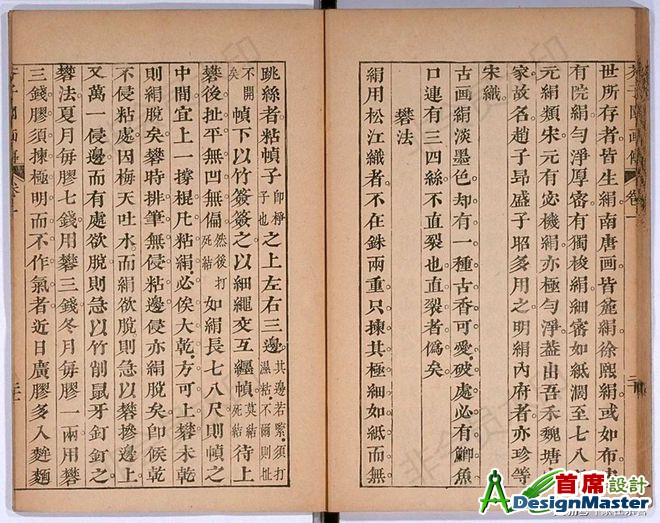 芥子園画傳 卷一
世所存者皆生絹。南唐画皆麄絹。徐熙絹或如布。
有院絹。勻淨厚密。有獨梭絹。細密如紙。濶至七八
元絹類宋。元有宓機絹。亦極勻淨。葢出吾禾魏塘
家。故名。趙子昂盛子昭多用之。明絹内府者亦珍等
宋織
古画絹淡墨色。却有一種古香可愛。破處必有鯽魚
口連有三四絲。不直裂也。直裂者僞矣
礬法
絹用松江織者。不在銖兩重。只揀其極細如紙。而無
跳絲者。粘幀子即㡧子也之上左右三邊。其邊若緊。須打濕粘。不爾則扯
不開矣幀下以竹簽簽之。以細繩交互纒幀莫結死結待上
礬後扯平。無凹無偏。然後打死結如絹長七八尺。則幀之
中間宜上一撐棍。凡粘絹必俟大乾。方可上礬。未乾
則絹脫矣。礬時排筆無侵粘邊。侵亦絹脫矣。即候乾
不侵粘處。因梅天吐水。而絹欲脫。則急以礬摻邊上。
又萬一侵邊。而有處欲脫。則急以竹削鼠牙釘釘之。
礬法夏月每膠七錢。用礬三錢。冬月每膠一兩。用礬
三錢。膠須揀極明而不作氣者。近日廣膠多入麪麵
首席設計
ADesignMaster